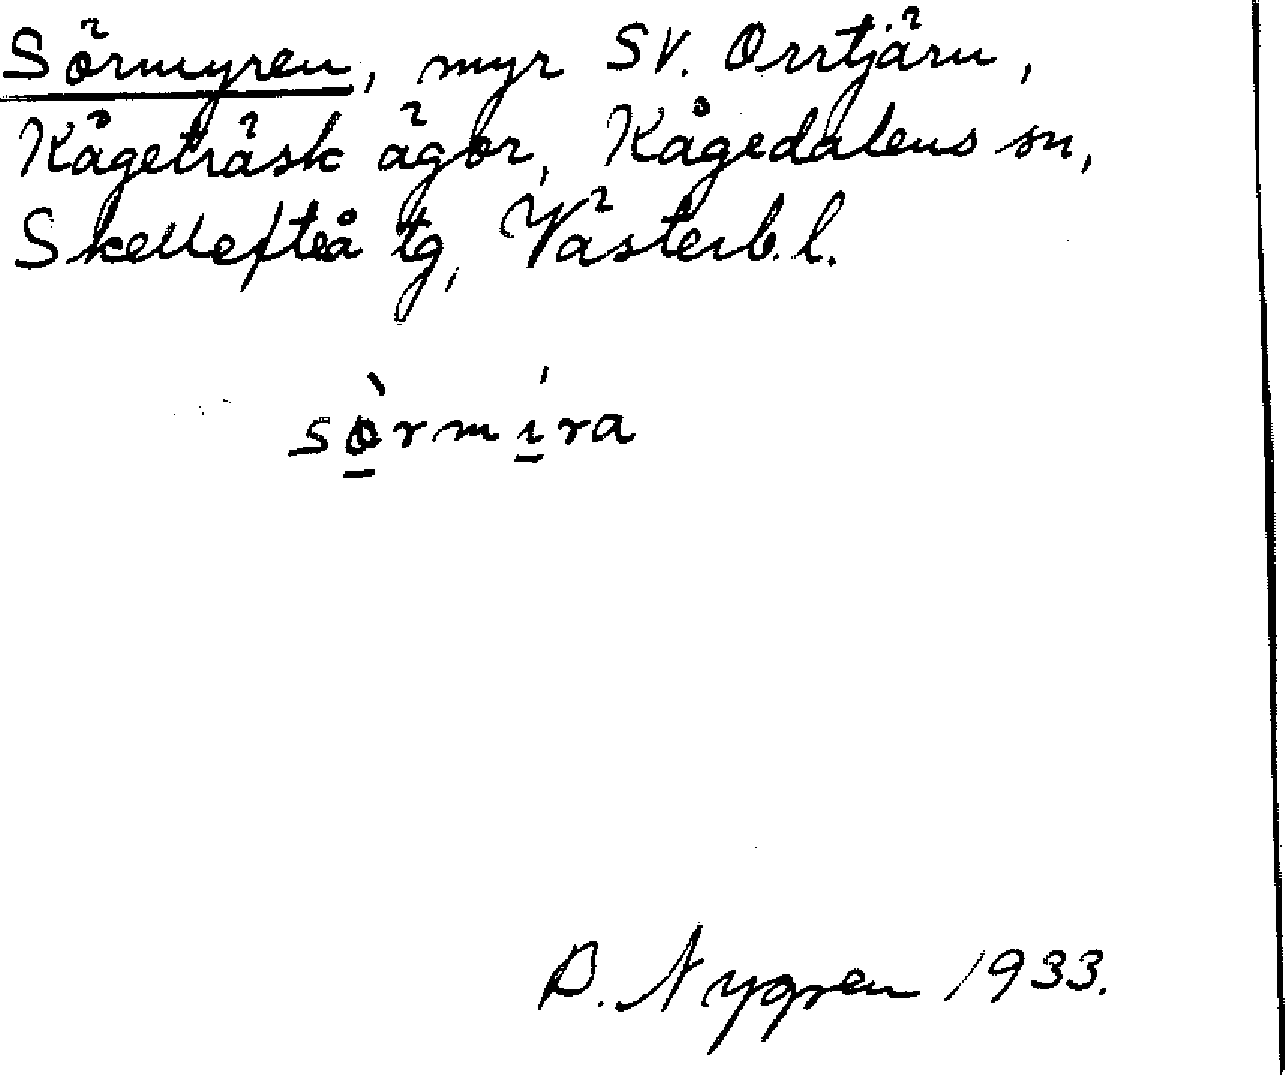 Sörmyren, myr SV. Orrtjärn,
Kågeträsk ägor, Kågedalens sn,
Skellefteå tg, Västerb. l.
sò̱rmí̱ra
B. Nygren 1933.